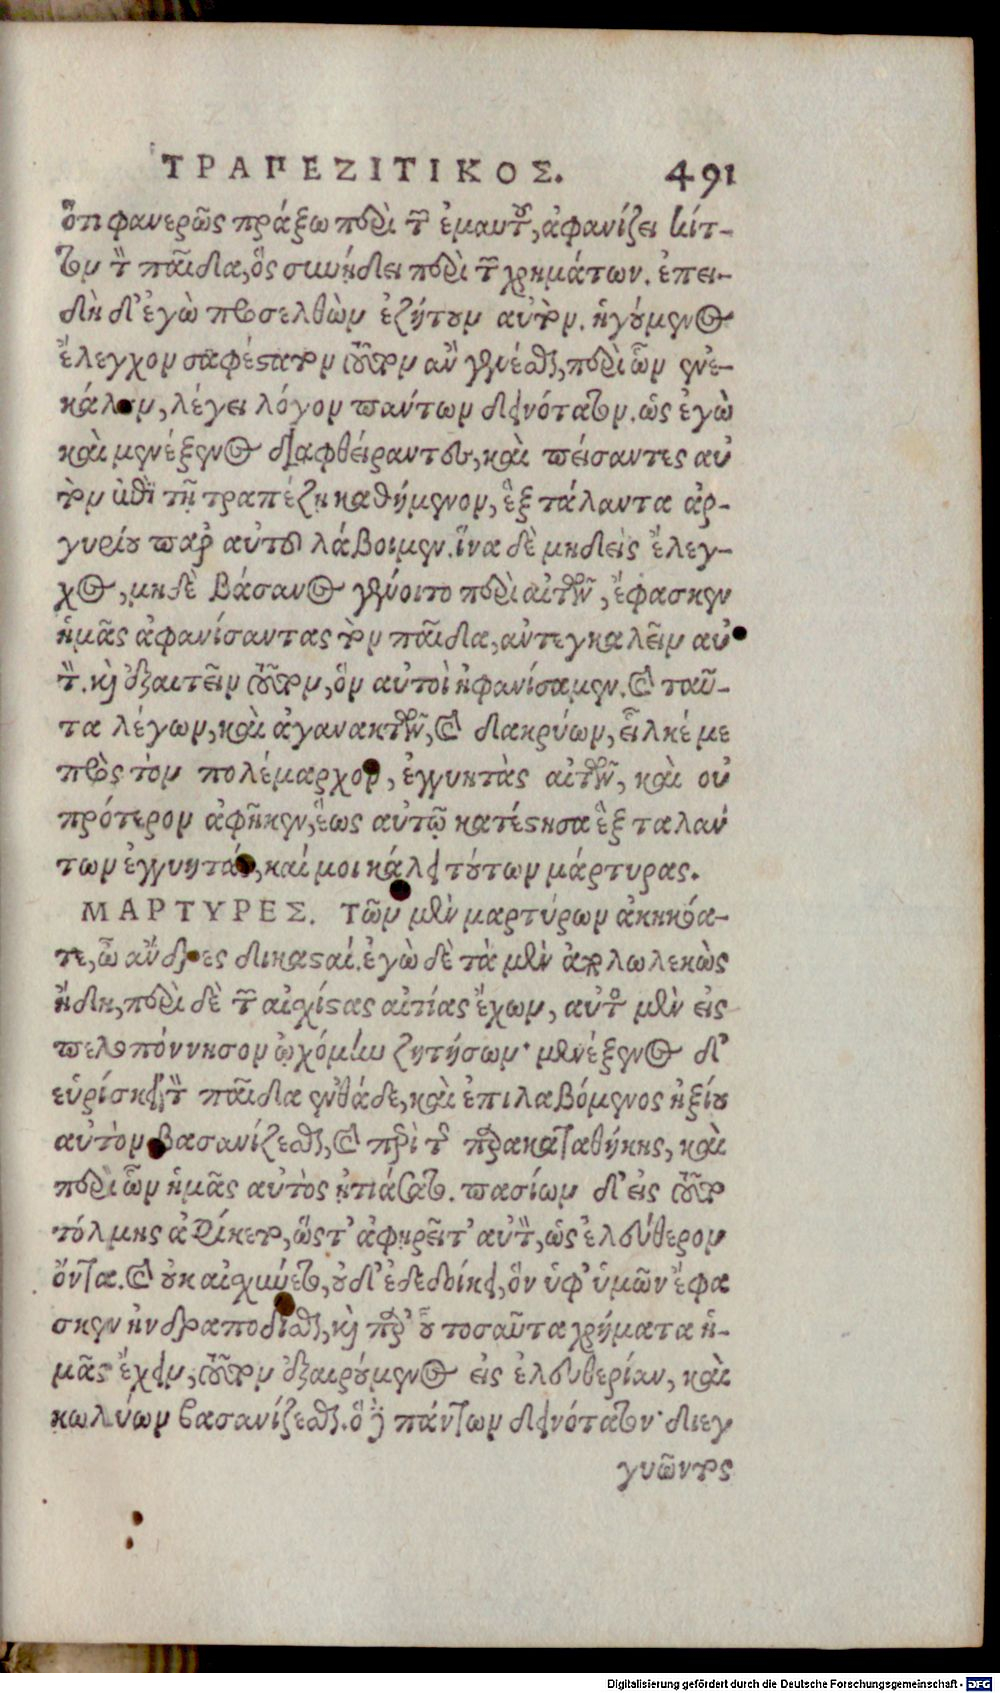 ΤΡΑΠΕΖΙΤΙΚΟΣ. 491
ὅτι φανερῶς πράξω περὶ τῶν ἐμαυτοῦ, ἀφανίζει κίτ-
τον τὸν παῖδα, ὃς συνῄδει περὶ τῶν χρημάτων. ἐπει-
δὴ δ' ἐγὼ προσελθὼν ἐζήτουν αὐτὸν. ἡγούμενος
ἔλεγχον σαφέστατον τοῦτον ἂν γενέσθαι, περὶ ὧν ἐνε-
κάλουν, λέγει λόγον πάντων δεινότατον. ὡς ἐγὼ
καὶ μενέξενος διαφθείραντες, καὶ πείσαντες αὐ
τὸν ἐπὶ τῇ τραπέζῃ καθήμενον, ἓξ τάλαντα ἀρ-
γυρίου παρ' αὐτοῦ λάβοιμεν. ἵνα δὲ μηδεὶς ἔλεγ-
χος, μηδὲ βάσανος γένοιτο περὶ αὐτῶν, ἔφασκεν
ἡμᾶς ἀφανίσαντας τὸν παῖδα, ἀντεγκαλεῖν αὐ
τῷ. καὶ ἐξαιτεῖν τοῦτον, ὃν αὐτοὶ ἠφανίσαμεν. καὶ ταῦ-
τα λέγων, καὶ ἀγανακτῶν, καὶ δακρύων, εἷλκέ με
πρὸς τὸν πολέμαρχον, ἐγγυητὰς αἰτῶν, καὶ οὐ
πρότερον ἀφῆκεν, ἕως αὐτῷ κατέστησα ἓξ ταλάν
των ἐγγυητάς, καί μοι κάλει τούτων μάρτυρας.
ΜΑΡΤΥΡΕΣ. Τῶν μὲν μαρτύρων ἀκηκόα-
τε, ὦ ἄνδρες δικασταί. ἐγὼ δὲ τὰ μὲν ἀπολωλεκὼς
ἤδη, περὶ δὲ τῶν αἰσχίστας αἰτίας ἔχων, αὐτὸς μὲν εἰς
πελοπόννησον ᾠχόμην ζητήσων· μενέξενος δ'
εὑρίσκει τὸν παῖδα ἐνθάδε, καὶ ἐπιλαβόμενος ἠξίου
αὐτὸν βασανίζεσθαι, καὶ περὶ τῆς παρακαταθήκης, καὶ
περὶ ὧν ἡμᾶς αὐτὸς ᾐτιάσατο. πασίων δ' εἰς τοῦτο
τόλμης ἀφίκετο, ὥστ' ἀφῃρεῖτ' αὐτὸν, ὡς ἐλεύθερον
ὄντα. καὶ οὐκ αἰσχύνετο, οὐδ' ἐδεδοίκει, ὃν ὑφ' ὑμῶν ἔφα
σκεν ἠνδραποδίσθαι, καὶ παρ' οὗ τοσαῦτα χρήματα ἡ-
μᾶς ἔχειν, τοῦτον ἐξαιρούμενος εἰς ἐλευθερίαν, καὶ
κωλύων βασανίζεσθαι. ὃ δὲ πάντων δεινότατον· διεγ
γυῶντος